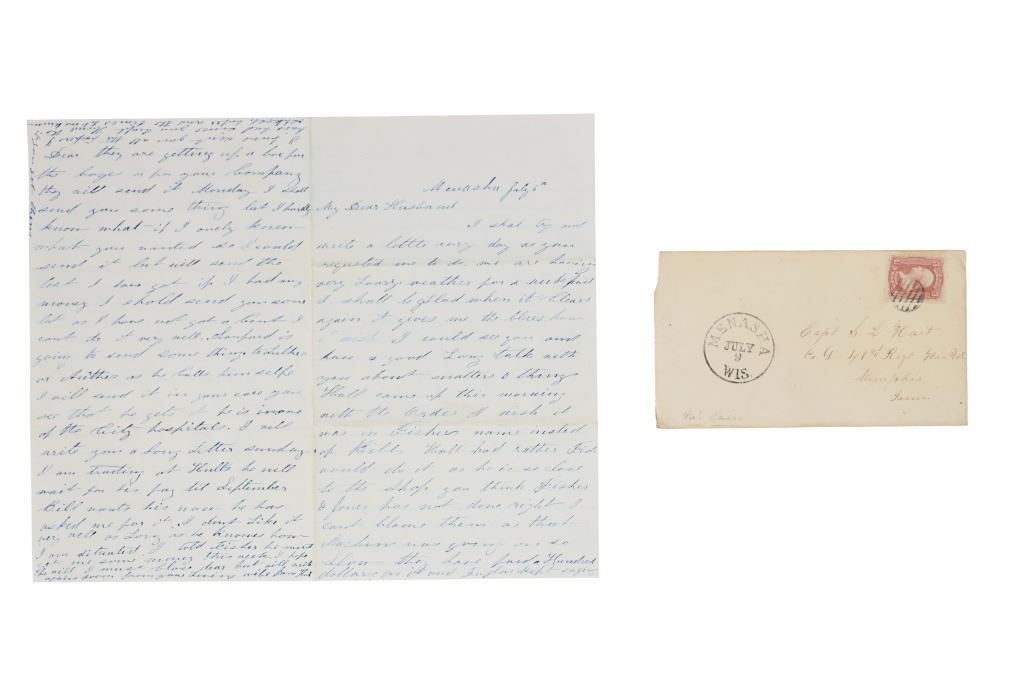 Menasha July 6th
My Dear Husband
I shal try and
write a letter evry day as you
requested me to do. we are having
very Loury weather for a week past
I shall be glad when it clears
again it gives me the blues. how
I wish I could see you and
have a good Long talk with
you about matters & things
Hall came up this morning
with the Order I wish it
was in Fishers name insted
of Kibbs Hull had rather Fish
would do it as he is so close
to the shop. you think Fisher
& Jones has not done right I
cant blame them as that
Machine was going on so
slow the have paid a Hundred
dollars on it and
Dear they are getting up a box for
the boyes or for your Company
they will send it Monday I shall
send you some thing but I hardly
know what if I onely knew
what you wanted so I would
send it but will send the
best I have got if I had any
money I shold send you some
but as I have not got a cent I
cant do it very well. Sanford is
going to send some thing to
or Arther as he calls himselfe
I will send it in your care you
see that he gets it he is in one
of the City hospitals. I will
write you a long Letter sunday.
I am trading at Hulls he will
wait for his pay til September
Bill wants his now he has
asked me for it. I dont Like it
very well as Long as he knowes how
I am situated I told Fisher he must
get me some money this week I hope
he will I must close dear but will write
again soon from your Loveing wife
I have sent you all the papers I
have had since you left
MENASHA
JULY
9
WIS.
Capt S L Hart
Co. D 41st Regt Wis Vol
Memphis
Tenn
Via Cairo